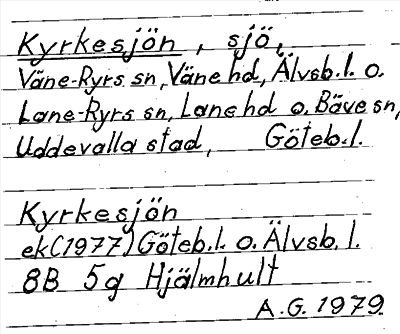 Kyrkesjön, sjö,
Väne-Ryrs sn, Väne hd, Älvsb. l. o.
Lane-Ryrs sn, Lane hd o. Bäve sn,
Uddevalla stad, Göteb. l.
Kyrkesjön
ek (1977) Göteb. l. o. Älvsb. l.
8B 5g Hjälmhult
A.G. 1979